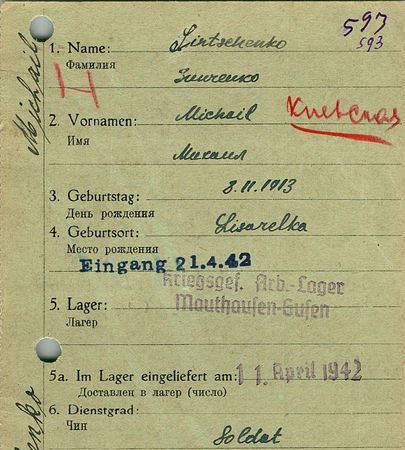 597
593
1. Name:
Фамилия
Зинченко
H
2. Vornamen: Michail
Киевская
Имя
Михаил
Michail
3. Geburtstag: 8.11.1913
День рождения
4. Geburtsort: Lisarelka
Место рождения
Eingang 21.4.42
Kriegsgef. Arb.-Lager
Mauthausen-Gusen
5. Lager:
Лагерь
5a. Im Lager eingeliefert am: 11. April 1942
Доставлен в лагерь (число)
6. Dienstgrad:
Чин
Soldat